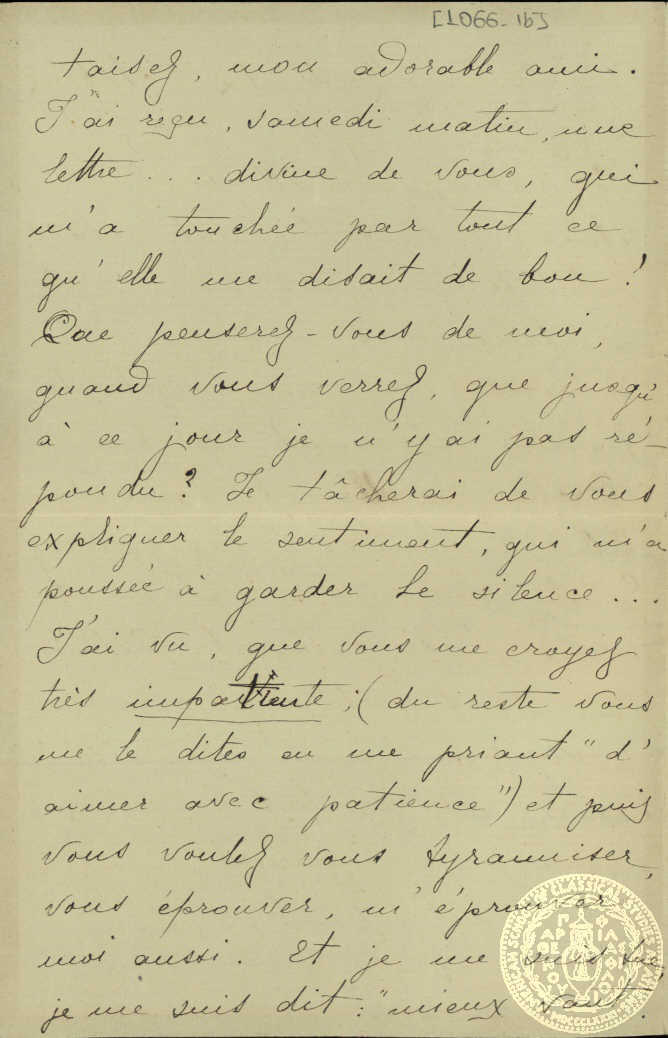 [1066-1b]
taisez, mon adorable ami.
J'ai reçu, samedi matin, une
lettre... divine de vous, qui
m'a touchée par tout ce
qu'elle me disait de bon!
Que penserez-vous de moi,
quand vous verrez, que jusqu'
à ce jour je n'y ai pas ré-
pondu? Je tâcherai de vous
expliquer le sentiment, qui m'a
poussée à garder le silence...
J'ai vu, que vous me croyez
très impatiente; (du reste vous
me le dites en me priant "d'
aimer avec patience") et puis
vous voulez vous tyranniser,
vous éprouver, m'éprouver
moi aussi. Et je me suis tue,
je me suis dit: "mieux vaut
AMERICAN SCHOOL OF CLASSICAL STUDIES
ΠΑΡΘΕΝΟΥ ΦΙΑΛΑΣ